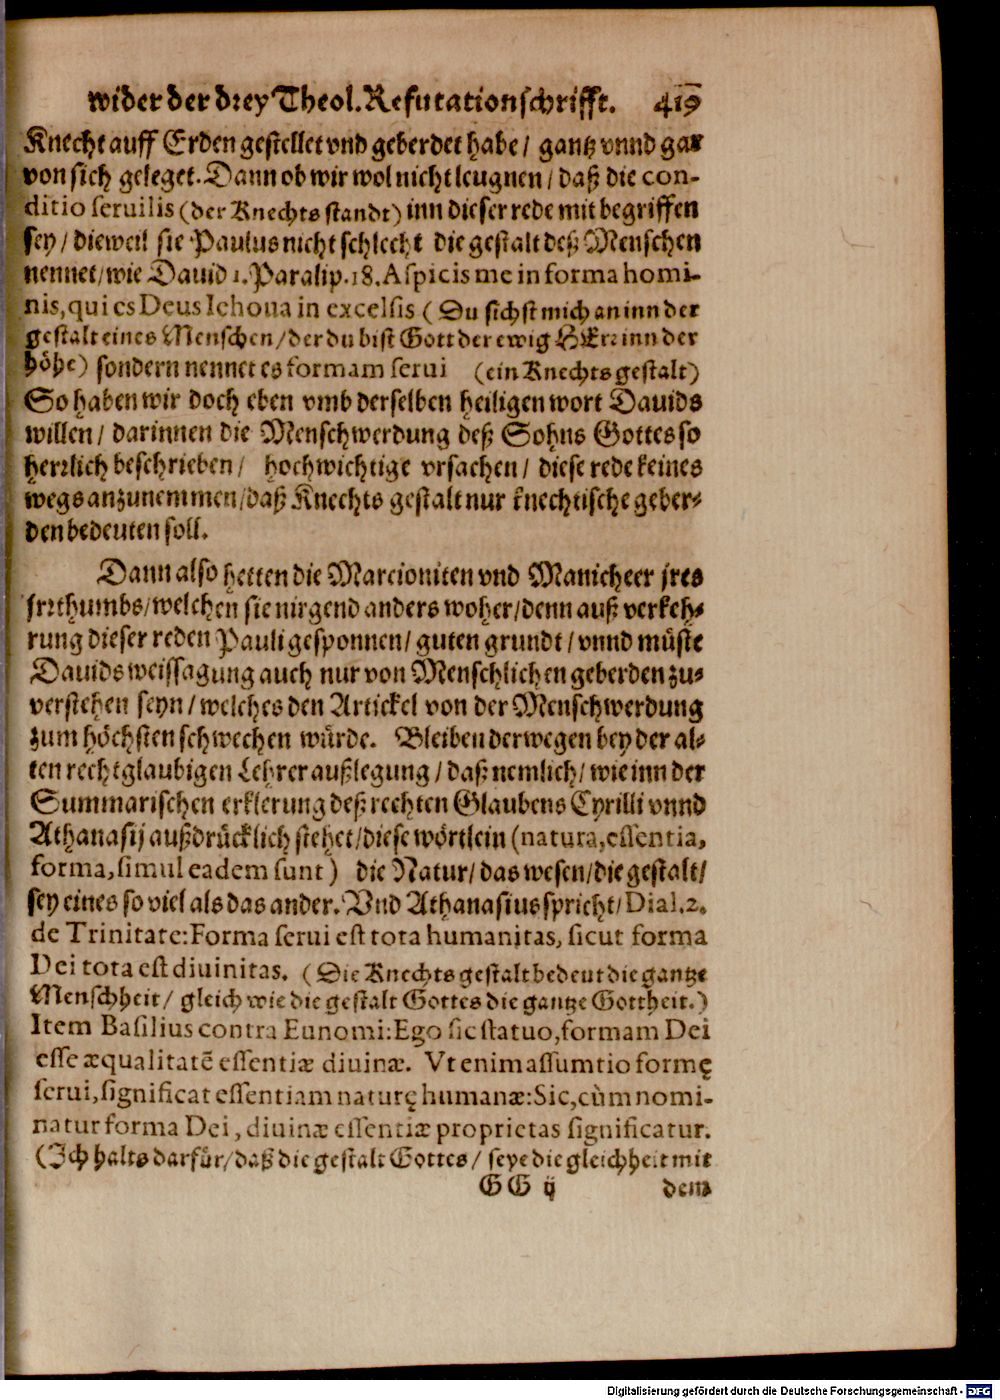 wider der drey Theol. Refutationschrifft. 419
Knecht auff Erden gestellet vnd geberdet habe / gantz vnnd gar
von sich geleget. Dann ob wir wol nicht leugnen / daß die con-
ditio seruilis (der Knechts standt) inn dieser rede mit begriffen
sey / dieweil sie Paulus nicht schlecht die gestalt deß Menschen
nennet / wie Dauid 1. Paralip. 18. Aspicis me in forma homi-
nis, qui es Deus Iehoua in excelsis (Du sichst mich an inn der
gestalt eines Menschen / der du bist Gott der ewig HErr inn der
höhe) sondern nennet es formam serui (ein Knechts gestalt)
So haben wir doch eben vmb derselben heiligen wort Dauids
willen / darinnen die Menschwerdung deß Sohns Gottes so
herrlich beschrieben / hochwichtige vrsachen / diese rede keines
wegs anzunemmen / daß Knechts gestalt nur knechtische geber-
den bedeuten soll.
Dann also hetten die Marcioniten vnd Manicheer jres
jrrthumbs / welchen sie nirgend anders woher / denn auß verkeh-
rung dieser reden Pauli gesponnen / guten grundt / vnnd müste
Dauids weissagung auch nur von Menschlichen geberden zu-
verstehen seyn / welches den Artickel von der Menschwerdung
zum höchsten schwechen würde. Bleiben derwegen bey der al-
ten rechtglaubigen Lehrer außlegung / daß nemlich / wie inn der
Summarischen erklerung deß rechten Glaubens Cyrilli vnnd
Athanasij außdrücklich stehet / diese wörtlein (natura, essentia,
forma, simul eadem sunt) die Natur / das wesen / die gestalt /
sey eines so viel als das ander. Vnd Athanasius spricht / Dial. 2.
de Trinitate: Forma serui est tota humanitas, sicut forma
Dei tota est diuinitas. (Die Knechts gestalt bedeut die gantze
Menschheit / gleich wie die gestalt Gottes die gantze Gottheit.)
Item Basilius contra Eunomi: Ego sic statuo, formam Dei
esse æqualitatē essentiæ diuinæ. Vt enim assumtio formę
serui, significat essentiam naturę humanæ: Sic, cùm nomi-
natur forma Dei, diuinæ essentiæ proprietas significatur.
(Ich halts darfür / daß die gestalt Gottes / seye die gleichheit mit
GG ij dem
Digitalisierung gefördert durch die Deutsche Forschungsgemeinschaft - DFG